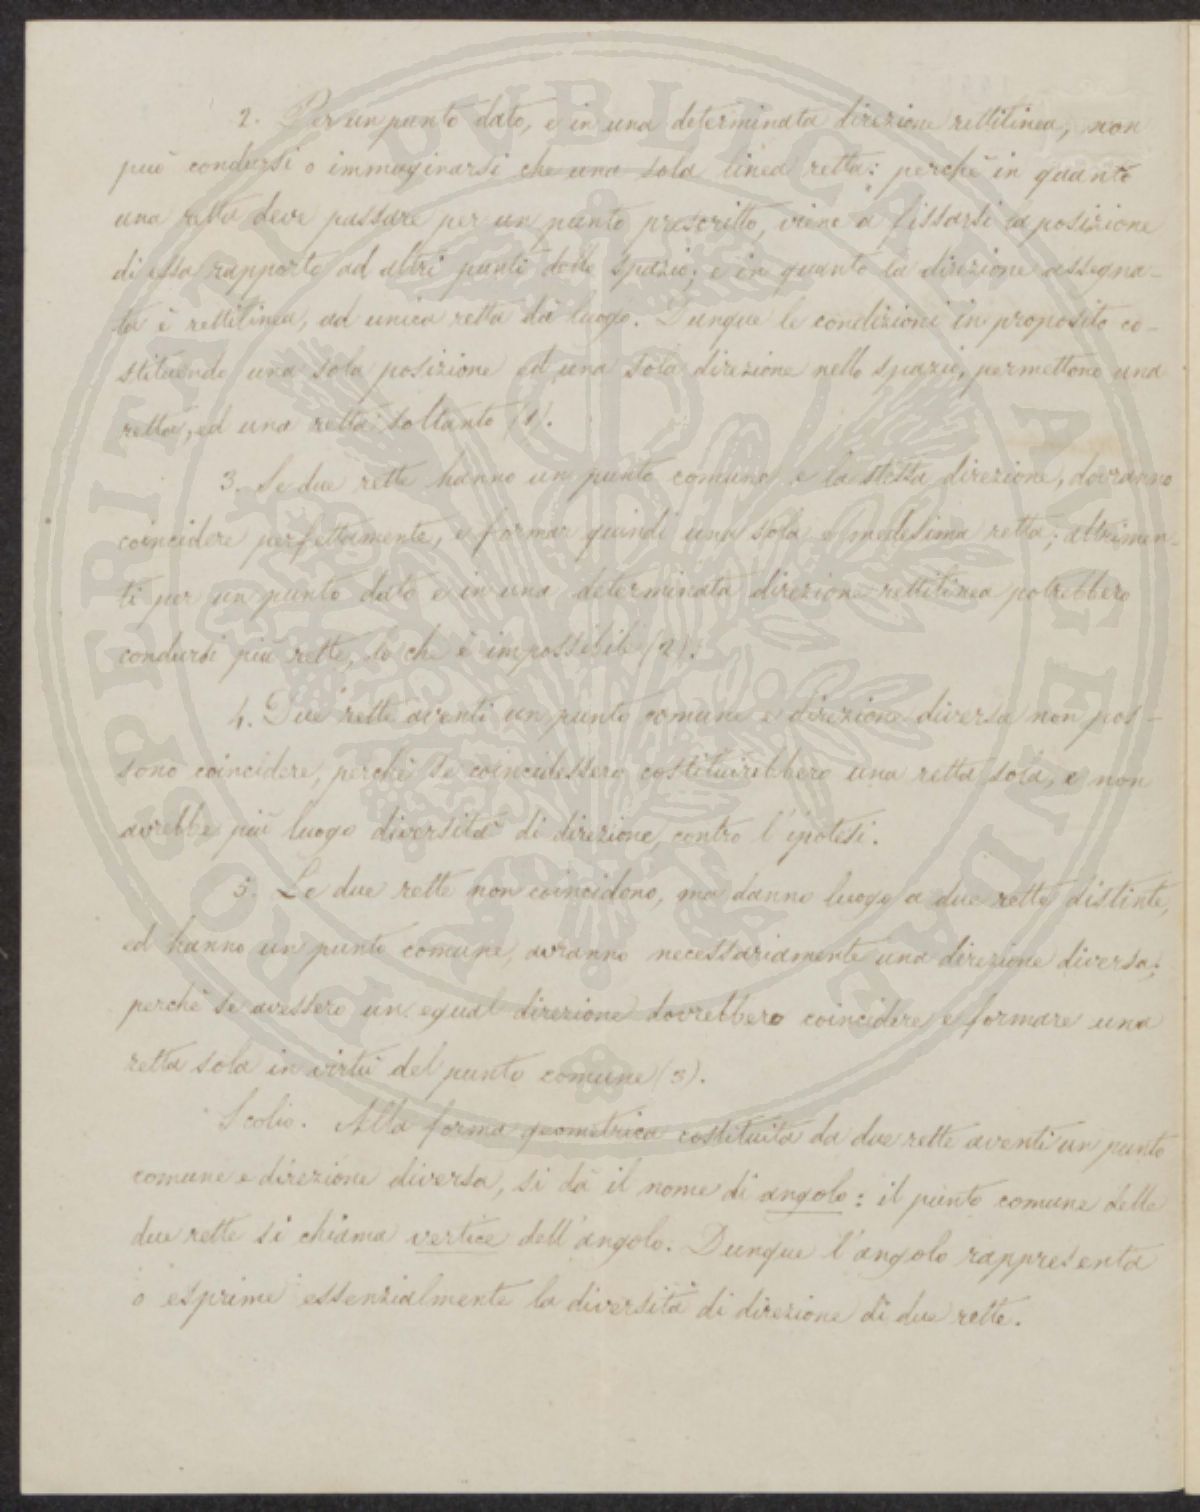 2. Per un punto dato, e in una determinata direzione rettilinea, non
può condursi o immaginarsi che una sola linea retta: perchè in quanto
una retta deve passare per un punto prescritto, viene a fissarsi la posizione
di essa rapporto ad altri punti dello spazio; e in quanto la direzione assegna-
ta è rettilinea, ad unica retta dà luogo. Dunque le condizioni in proposito co-
stituendo una sola posizione ed una sola direzione nello spazio, permettono una
retta, ed una retta soltanto (1).
3. Se due rette hanno un punto comune e la stessa direzione, dovranno
coincidere perfettamente, e formar quindi una sola e medesima retta; altrimen-
ti per un punto dato e in una determinata direzione rettilinea potrebbero
condursi più rette, lo che è impossibile (2).
4. Due rette aventi un punto comune e direzione diversa non pos-
sono coincidere, perchè se coincidessero costituirebbero una retta sola, e non
avrebbe più luogo diversità di direzione, contro l'ipotesi.
5. Se due rette non coincidono, ma danno luogo a due rette distinte,
ed hanno un punto comune, avranno necessariamente una direzione diversa;
perchè se avessero un egual direzione dovrebbero coincidere e formare una
retta sola in virtù del punto comune (3).
Scolio. Alla forma geometrica costituita da due rette aventi un punto
comune e direzione diversa, si dà il nome di angolo: il punto comune delle
due rette si chiama vertice dell'angolo. Dunque l'angolo rappresenta
o esprime essenzialmente la diversità di direzione di due rette.
PROSPERITATI PUBLICAE AUGENDAE